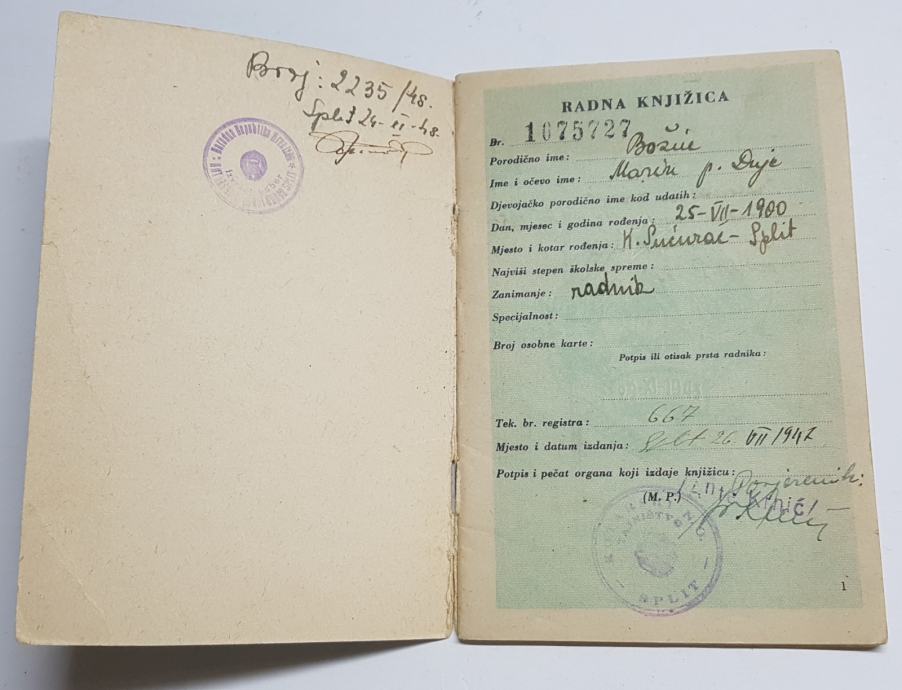 Broj: 2235/48.
Split 24-XI-48.
Narodna Republika Hrvatska
RADNA KNJIŽICA
Br. 1075727
Porodično ime: Božić
Ime i očevo ime: Marin p. Duje
Djevojačko porodično ime kod udatih:
Dan, mjesec i godina rođenja: 25-VII-1900
Mjesto i kotar rođenja: K. Sućurac - Split
Najviši stepen školske spreme:
Zanimanje: radnik
Specijalnost:
Broj osobne karte:
Potpis ili otisak prsta radnika:
Tek. br. registra: 667
Mjesto i datum izdanja: Split 26. VII 1947
Potpis i pečat organa koji izdaje knjižicu: Povjerenik:
(M. P.)
SPLIT
1